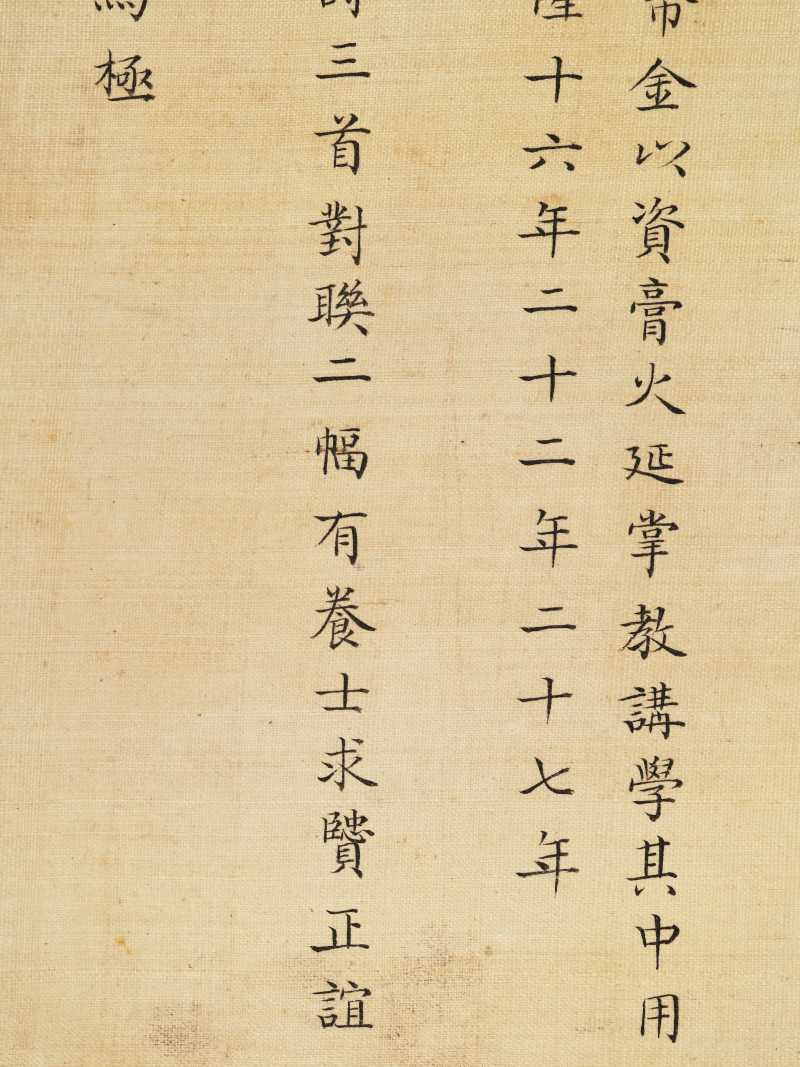 帑金以資膏火延掌教講學其中用
隆十六年二十二年二十七年
詩三首對聯二幅有養士求賢正誼
為極